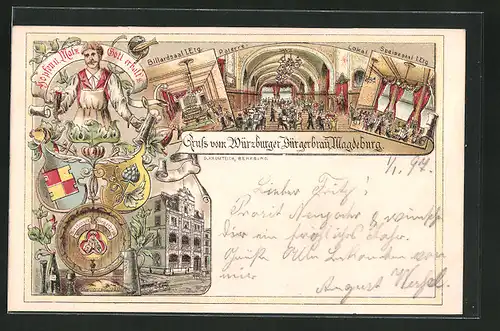 Hopfen u. Malz Gott erhalt's
Billardsaal I. Etg.
Paterre.
Lokal
Speisesaal I. Etg.
Gruß vom Würzburger Bürgerbräu, Magdeburg.
1/1. 97.
Lieber Fritz!
Prosit Neujahr & wünsche
dir ein fröhliches Jahr.
von
mir
August